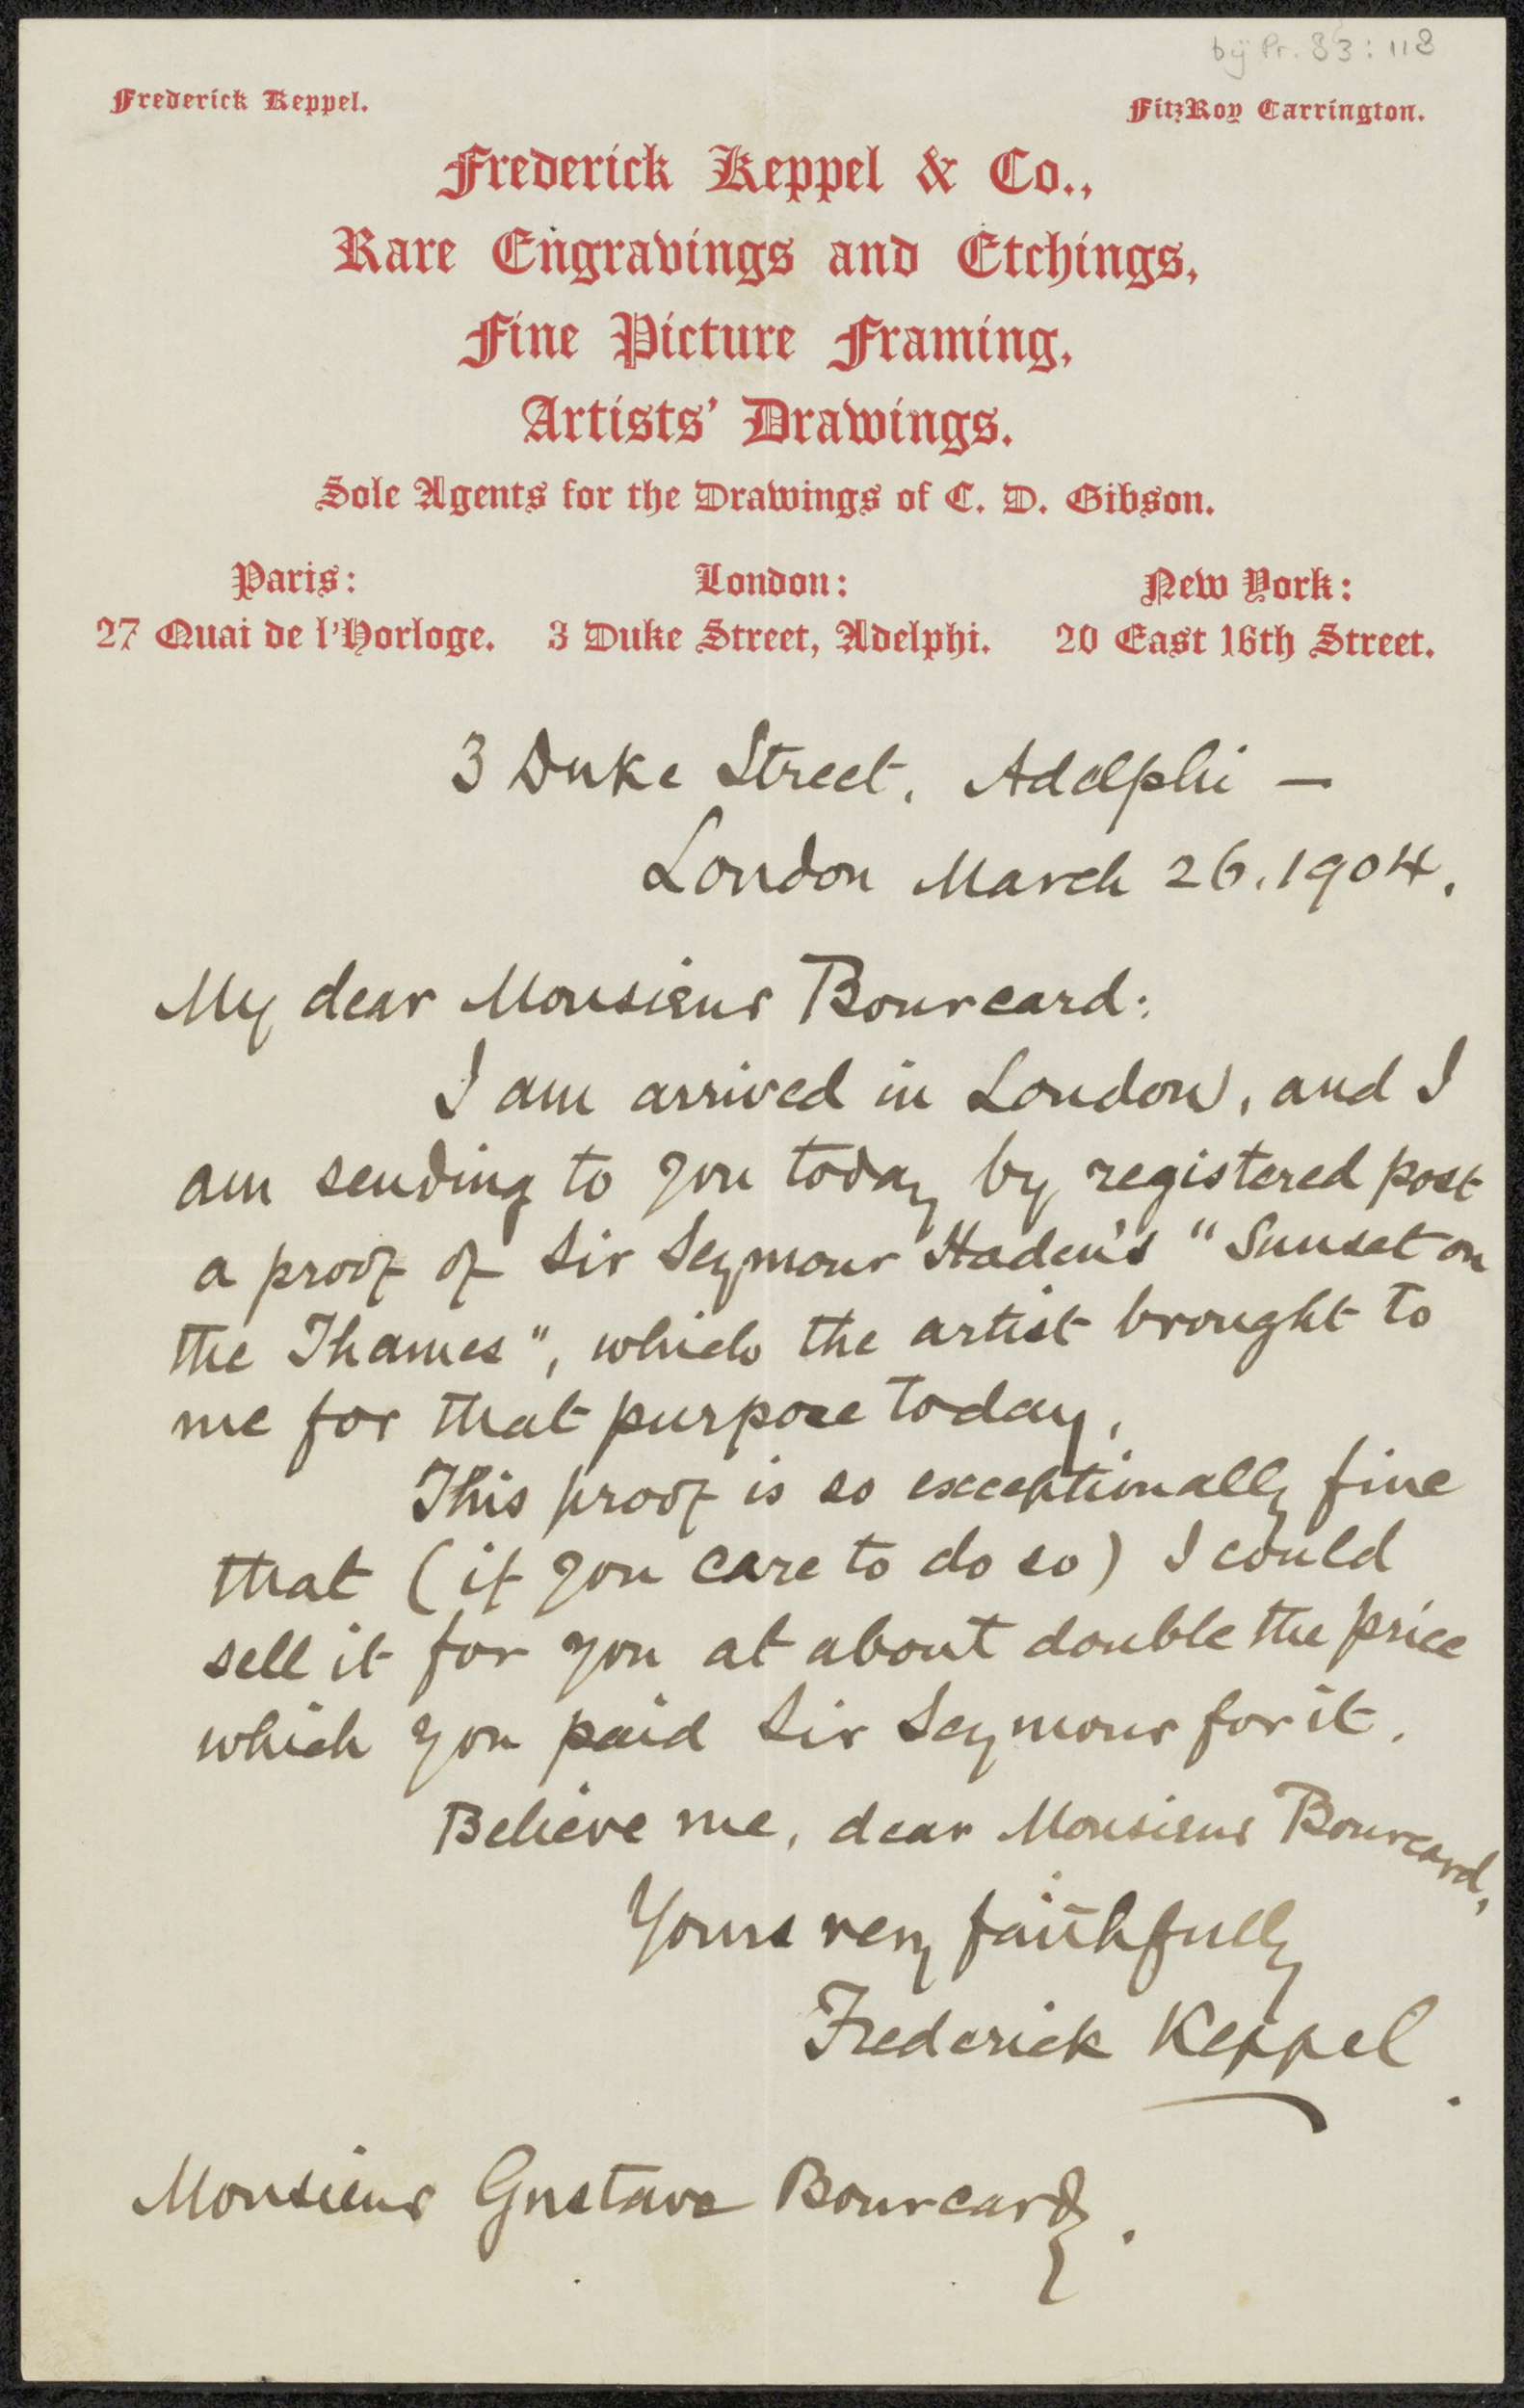 by Pr. 83:118
Frederick Keppel.
FitzRoy Carrington.
Frederick Keppel & Co.,
Rare Engravings and Etchings,
Fine Picture Framing,
Artists' Drawings.
Sole Agents for the Drawings of C. D. Gibson.
Paris: London: New York:
27 Quai de l'Horloge. 3 Duke Street, Adelphi. 20 East 16th Street.
3 Duke Street, Adelphi —
London March 26. 1904.
My dear Monsieur Bourcard:
I am arrived in London, and I
am sending to you today by registered post
a proof of Sir Seymour Haden's "Sunset on
the Thames", which the artist brought to
me for that purpose today.
This proof is so exceptionally fine
that (if you care to do so) I could
sell it for you at about double the price
which you paid Sir Seymour for it.
Believe me, dear Monsieur Bourcard,
Yours very faithfully
Frederick Keppel.
Monsieur Gustave Bourcard.